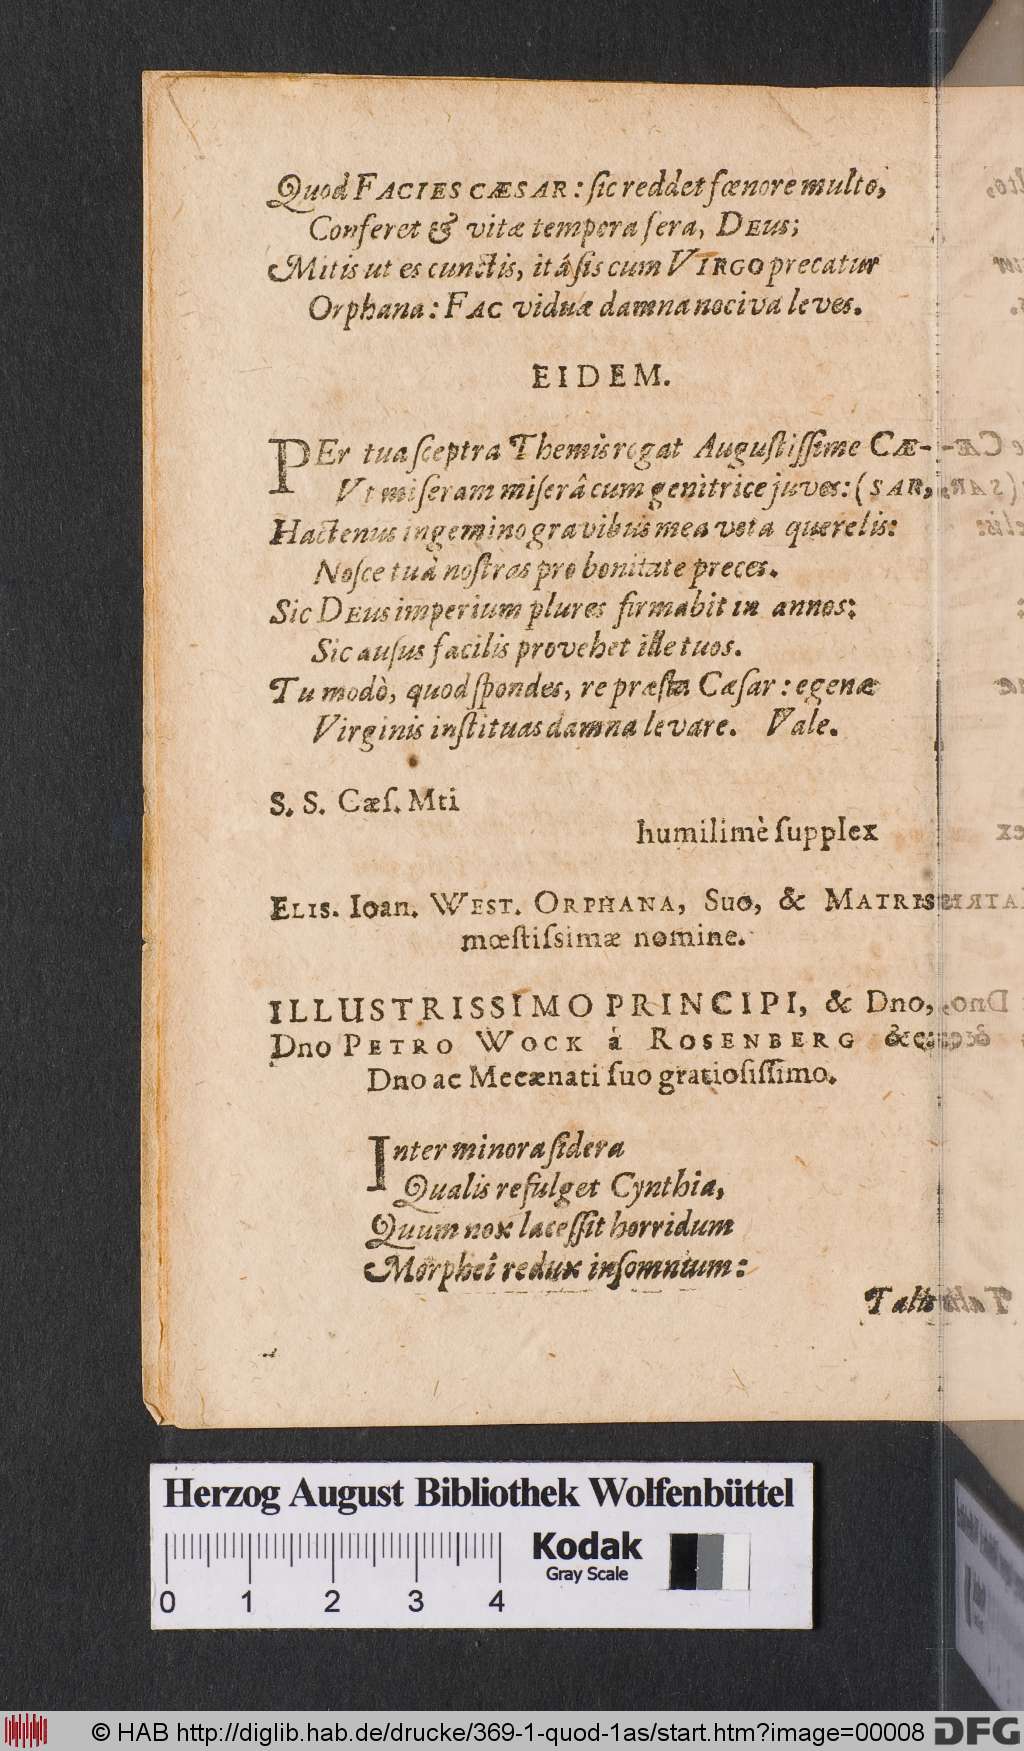 Quod FACIES CÆSAR: ſic reddet fœnore multo,
Conferet & vitæ tempora ſera, DEUS;
Mitis ut es cunctis, itá ſis cum VIRGO precatur
Orphana: FAC viduæ damna nociva leves.
EIDEM.
PEr tua ſceptra Themis rogat Auguſtiſſime CÆ-
Vt miſeram miſerâ cum genitrice juves: (SAR,
Hactenus ingemino gravibus mea vota querelis:
Noſce tuà noſtras pro bonitate preces.
Sic DEUS imperium plures firmabit in annos;
Sic auſus facilis provehet ille tuos.
Tu modò, quod ſpondes, re præſta Cæſar: egenæ
Virginis inſtituas damna levare. Vale.
S. S. Cæſ. Mti
humilimè ſupplex
ELIS. Ioan. WEST. ORPHANA, Suo, & MATRIS
mœſtiſsimæ nomine.
ILLUSTRISSIMO PRINCIPI, & Dno,
Dno PETRO WOCK á ROSENBERG &c:
Dno ac Mecænati ſuo gratioſiſſimo.
Inter minora ſidera
Qualis refulget Cynthia,
Quum nox laceſſit horridum
Morphei redux inſomnium:
Talis
Herzog August Bibliothek Wolfenbüttel
Kodak
Gray Scale
0 1 2 3 4
© HAB http://diglib.hab.de/drucke/369-1-quod-1as/start.htm?image=00008 DFG